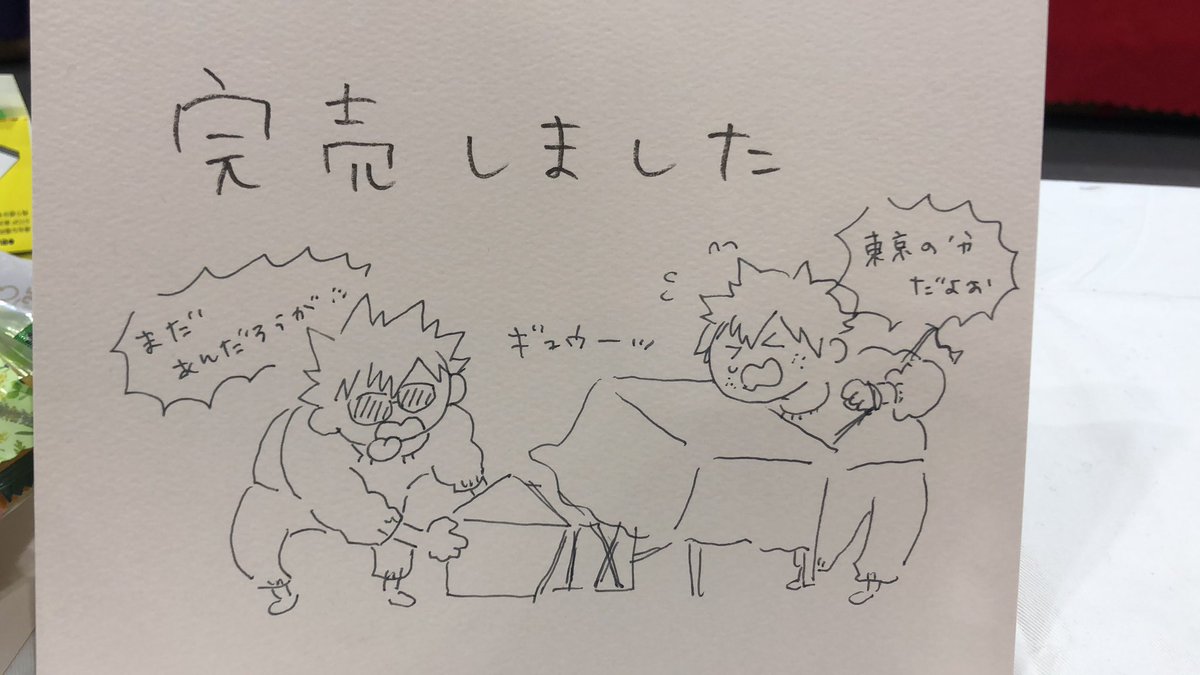 完売しました
まだ
あんだろうが…
ギュウー…
東京の分
だよぉ